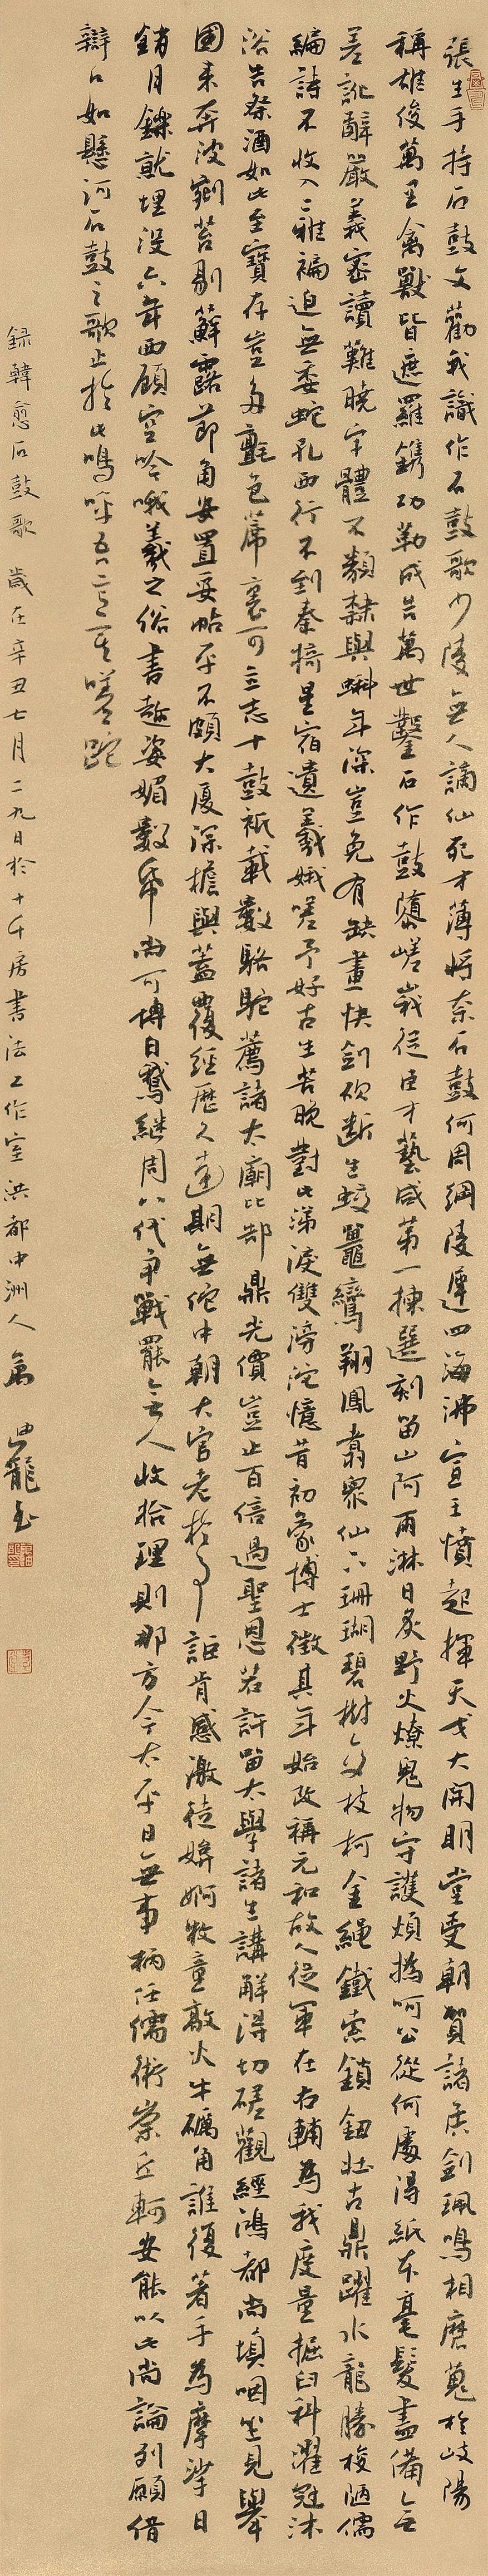 張生手持石鼓文勸我識作石鼓歌少陵無人謫仙死才薄將奈石鼓何周綱陵遲四海沸宣王憤起揮天戈大開明堂受朝賀諸侯劍珮鳴相磨蒐於岐陽
稱雄俊萬里禽獸皆遮羅鐫功勒成告萬世鑿石作鼓隳嵯峨從臣才藝咸第一揀選刻留山阿雨淋日炙野火燎鬼物守護煩撝呵公從何處得紙本毫髮盡備無
差訛辭嚴義密讀難曉字體不類隸與蝌年深豈免有缺畫快劍斫斷生蛟鼉鸞翔鳳翥眾仙下珊瑚碧樹交枝柯金繩鐵索鎖鈕壯古鼎躍水龍騰梭陋儒
編詩不收入二雅褊迫無委蛇孔西行不到秦掎星宿遺羲娥嗟予好古生苦晚對此涕淚雙滂沱憶昔初蒙博士徵其年始改稱元和故人從軍在右輔為我度量掘臼科濯冠沐
浴告祭酒如此至寶存豈多氈包席裹可立志十鼓衹載數駱駝薦諸太廟比郜鼎光價豈止百倍過聖恩若許留太學諸生講解得切磋觀經鴻都尚填咽坐見舉
國來奔波剜苔剔蘚露節角安置妥帖平不頗大廈深檐與蓋覆經歷久遠期無佗中朝大官老於事詎肯感激徒媕婀牧童敲火牛礪角誰復著手為摩挲日
銷月鑠就埋沒六年西顧空吟哦羲之俗書趁姿媚數紙尚可博白鵝繼周八代爭戰罷無人收拾理則那方今太平日無事柄任儒術崇丘軻安能以此尚論列願借
辯口如懸河石鼓之歌止於此嗚呼吾意其蹉跎
錄韓愈石鼓歌 歲在辛丑七月二九日於十千房書法工作室洪都中洲人 萬 龍